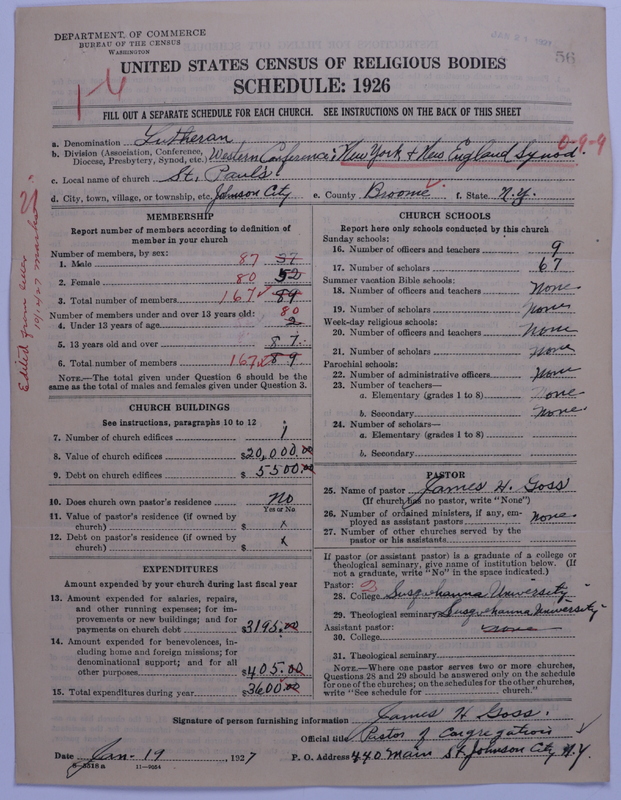 DEPARTMENT OF COMMERCE
BUREAU OF THE CENSUS
WASHINGTON
56
UNITED STATES CENSUS OF RELIGIOUS BODIES
SCHEDULE: 1926
1-4
FILL OUT A SEPARATE SCHEDULE FOR EACH CHURCH. SEE INSTRUCTIONS ON THE BACK OF THIS SHEET
a. Denomination Lutheran
0-9-9
b. Division (Association, Conference, Diocese, Presbytery, Synod, etc.) Western Conference; New York & New England Synod.
c. Local name of church St. Pauls.
d. City, town, village, or township, etc. Johnson City e. County Broome f. State N.Y.
MEMBERSHIP
Report number of members according to definition of
member in your church
Number of members, by sex:
1. Male 87 37
2. Female 80 52
3. Total number of members 167 89
Number of members under and over 13 years old:
4. Under 13 years of age 80 2
5. 13 years old and over 87
6. Total number of members 167 89
NOTE.—The total given under Question 6 should be
same as the total of males and females given under Question 3.
CHURCH BUILDINGS
See instructions, paragraphs 10 to 12
7. Number of church edifices 1
8. Value of church edifices $20,000.00
9. Debt on church edifices $5500.00
10. Does church own pastor's residence No
Yes or No
11. Value of pastor's residence (if owned by
church) $ x
12. Debt on pastor's residence (if owned by
church) $ x
EXPENDITURES
Amount expended by your church during last fiscal year
13. Amount expended for salaries, repairs,
and other running expenses; for im-
provements or new buildings; and for
payments on church debt $3195.00
14. Amount expended for benevolences, in-
cluding home and foreign missions; for
denominational support; and for all
other purposes $405.00
15. Total expenditures during year $3600.00
CHURCH SCHOOLS
Report here only schools conducted by this church
Sunday schools:
16. Number of officers and teachers 9
17. Number of scholars 67
Summer vacation Bible schools:
18. Number of officers and teachers None
19. Number of scholars None
Week-day religious schools:
20. Number of officers and teachers None
21. Number of scholars None
Parochial schools:
22. Number of administrative officers None
23. Number of teachers—
a. Elementary (grades 1 to 8) None
b. Secondary None
24. Number of scholars—
a. Elementary (grades 1 to 8)
b. Secondary
PASTOR
25. Name of pastor James H. Goss
(If church has no pastor, write "None")
26. Number of ordained ministers, if any, em-
ployed as assistant pastors None.
27. Number of other churches served by the
pastor or his assistants
If pastor (or assistant pastor) is a graduate of a college or
theological seminary, give name of institution below. (If
not a graduate, write "No" in the space indicated.)
Pastor: 2
28. College Susquehanna University
29. Theological seminary Susquehanna University
Assistant pastor: None
30. College
31. Theological seminary
NOTE.—Where one pastor serves two or more churches,
Questions 28 and 29 should be answered only on the schedule
for one of the churches; on the schedules for the other churches,
write "See schedule for church."
Signature of person furnishing information James H Goss.
Official title Pastor of Congregation
Date Jan- 19, 1927 P. O. Address 440 Main St Johnson City N.Y.
8-5518a 11-9054